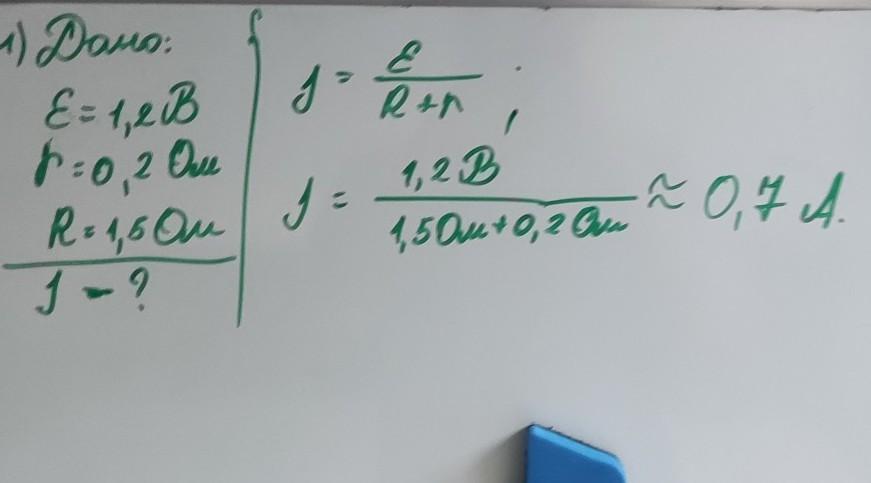 1) Дано:
ε = 1,2 В
r = 0,2 Ом
R = 1,5 Ом
J - ?
J = ε / (R + r) ;
J = 1,2 В / (1,5 Ом + 0,2 Ом) ≈ 0,7 А.